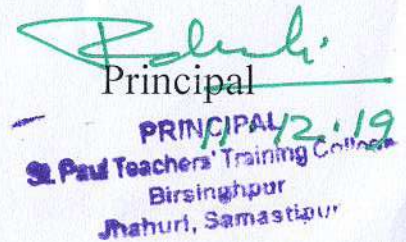 Principal
PRINCIPAL
11.12.19
St. Paul Teachers' Training College
Birsinghpur
Jhahuri, Samastipur